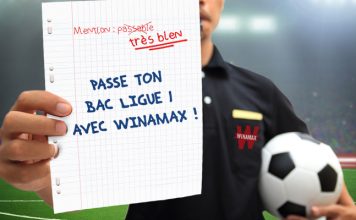 Mention : passable
très bien
PASSE TON
BAC LIGUE 1
AVEC WINAMAX !
W
WINAMAX